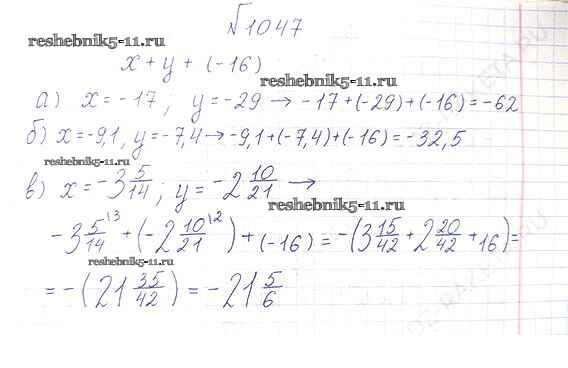 №1047
reshebnik5-11.ru
x + y + (-16)
reshebnik5-11.ru
а) x = -17; y = -29 → -17 + (-29) + (-16) = -62
б) x = -9,1, y = -7,4 → -9,1 + (-7,4) + (-16) = -32,5
reshebnik5-11.ru
в) x = -3 5/14; y = -2 10/21 →
reshebnik5-11.ru
-3 5/14 \3 + (-2 10/21 \2) + (-16) = -(3 15/42 + 2 20/42 + 16) =
reshebnik5-11.ru
= -(21 35/42) = -21 5/6